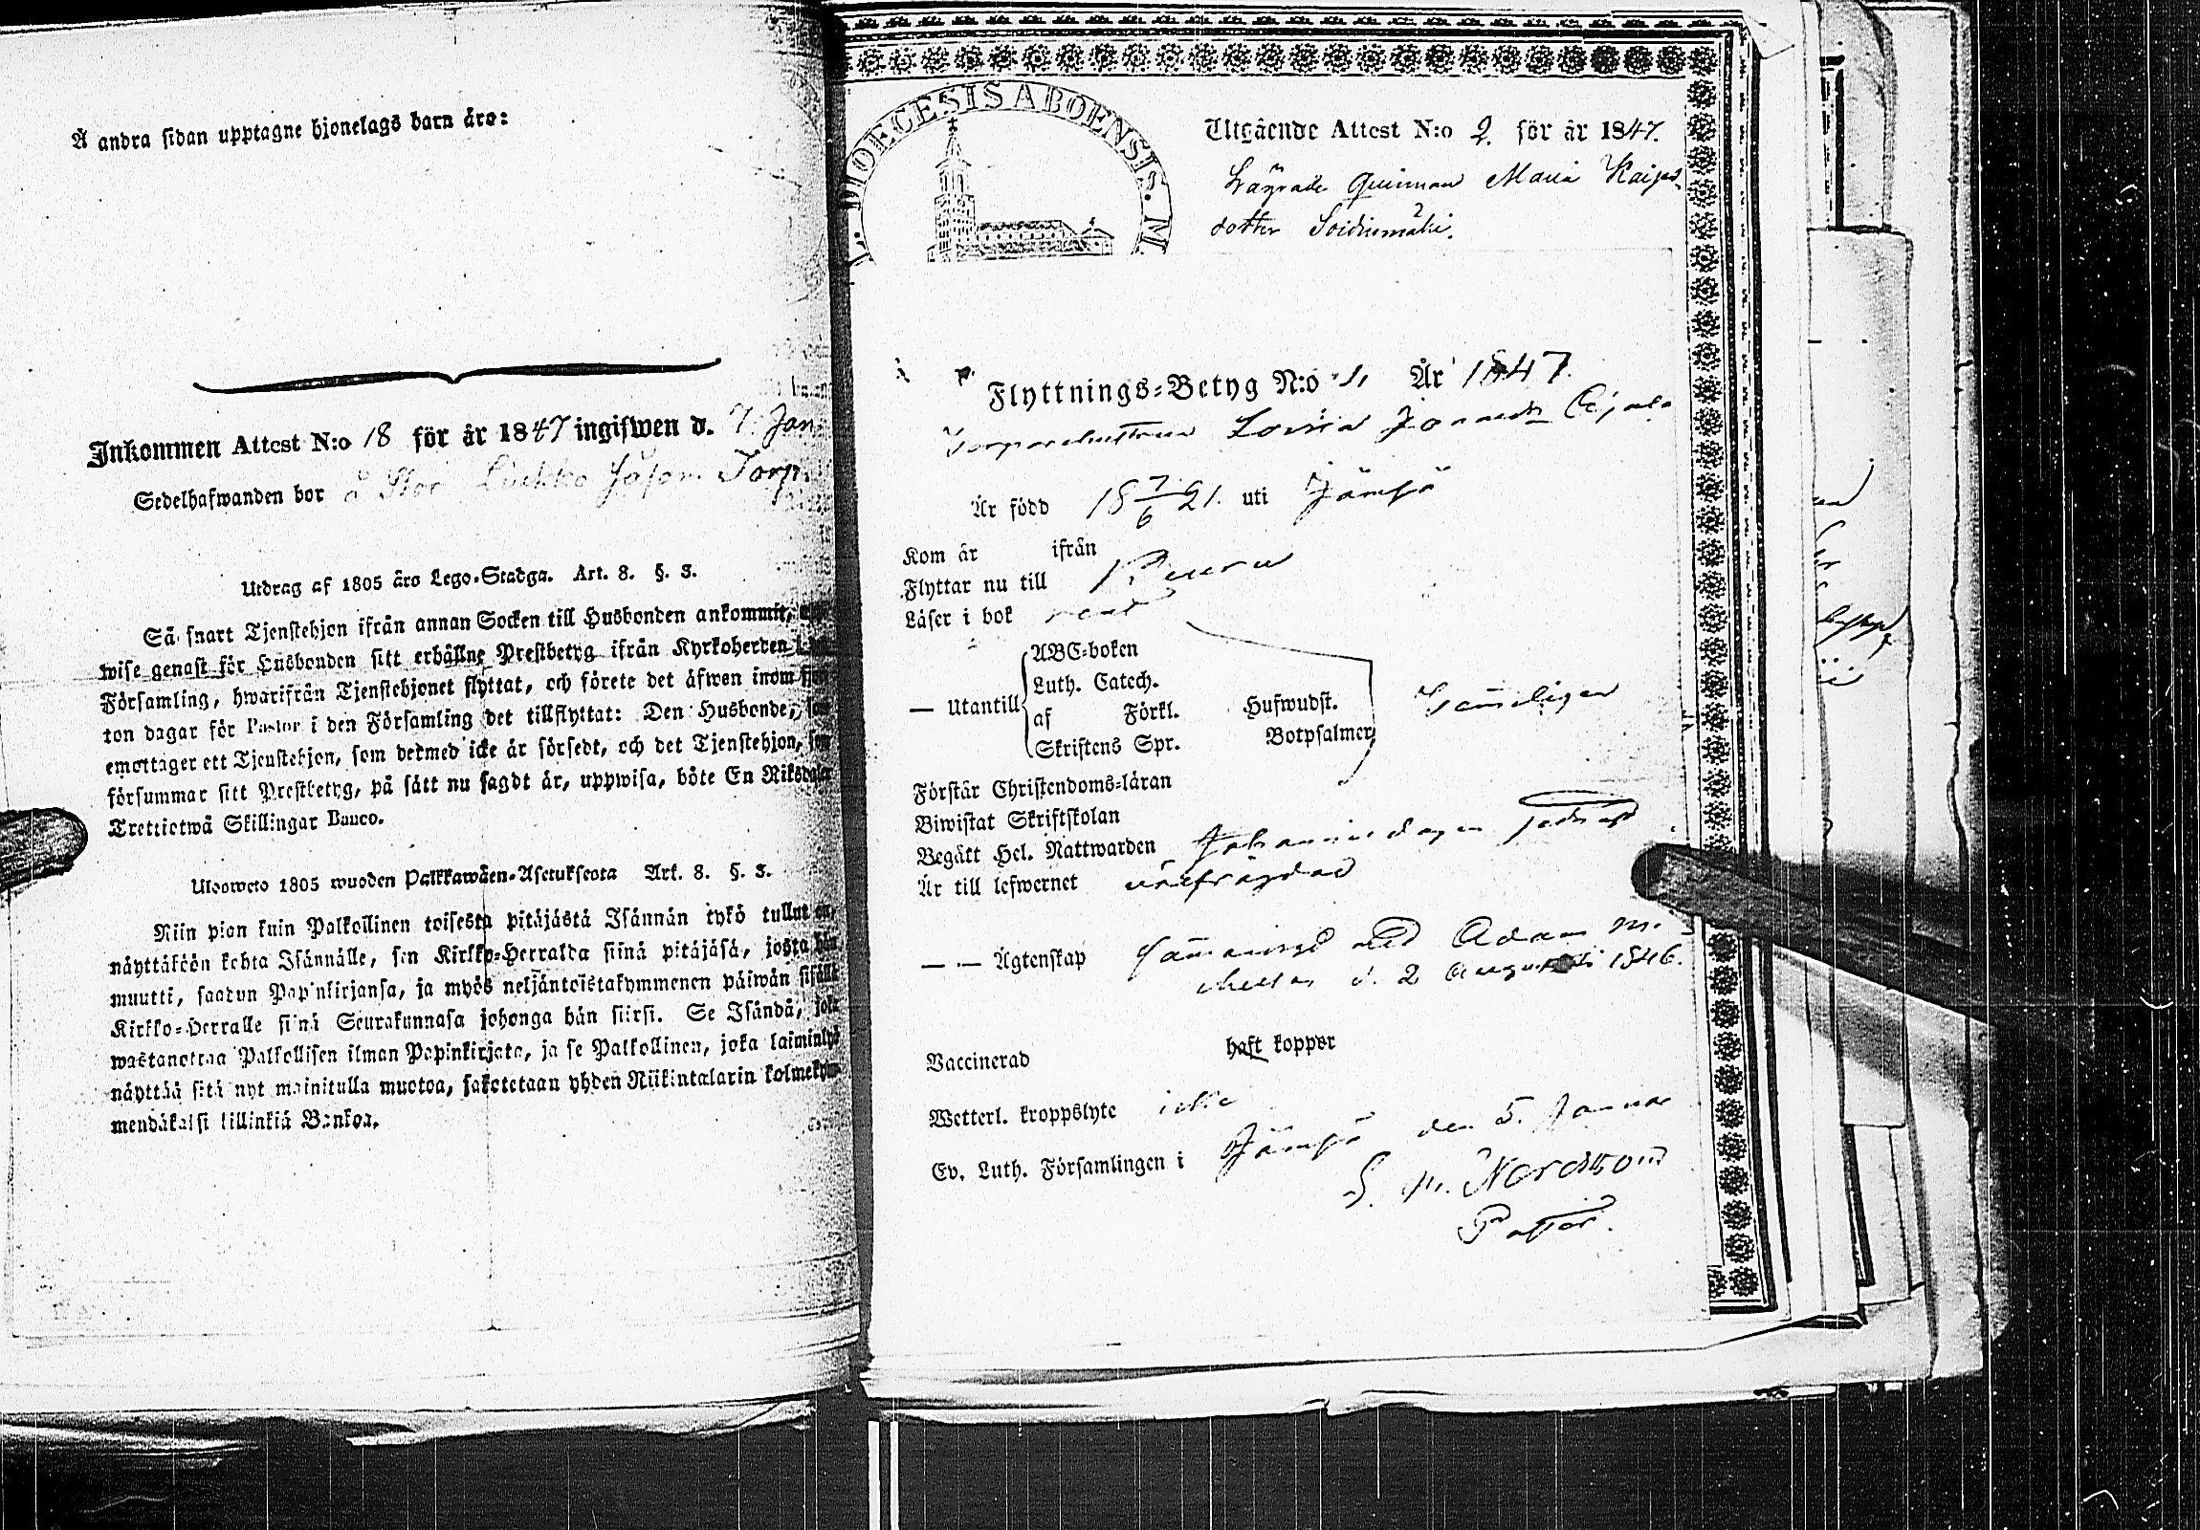 Å andra sidan upptagne hjonelags barn äro:
Inkommen Attest N:o 18 för år 1847 ingifwen d. 7 Jan
Sedelhafwanden bor å Stor Torp
Utdrag af 1805 års Lego-Stadga. Art. 8. §. 3.
Så snart Tjenstehjon ifrån annan Socken till Husbonden ankommit,
wise genast för Husbonden sitt erhållne Prestbetyg ifrån Kyrkoherden
Församling, hwarifrån Tjenstehjonet flyttat, och förete det äfwen inom
ton dagar för Pastor i den Församling det tillflyttat: Den Husbonde,
emottager ett Tjenstehjon, som dermed icke är försedt, och det Tjenstehjon,
försummar sitt Prestbetyg, på sätt nu sagdt är, uppwisa, böte En Riksdaler
Trettiotwå Skillingar Banco.
Ulosweto 1805 wuoden Palkkawäen-Asetuksesta Art. 8. §. 3.
Niin pian kuin Palkollinen toisesta pitäjästä Isännän tykö tullut on,
näyttäköön kohta Isännälle, sen Kirkko-Herralda siinä pitäjäsä, josta hän
muutti, saadun Papinkirjansa, ja myös neljäntoistakymmenen päiwän sisällä
Kirkko-Herralle siinä Seurakunnasa johonga hän siirsi. Se Isändä, joka
wastanottaa Palkollisen ilman Papinkirjata, ja se Palkollinen, joka laiminlyö
näyttää sitä nyt mainitulla muotoa, sakotetaan yhden Riikintalarin kolmekym-
mendäkaksi killinkiä Bankoa.
DIOECESIS ABOENSIS. M
Utgående Attest N:o 2. för år 1847.
Qwinnan Maria Kaijas
dotter
Flyttnings-Betyg N:o 1, År 1847.
Torparehustrun Lovisa
Är född 18 7/6 21. uti Jämsä
Kom år ifrån
Flyttar nu till
Läser i bok
— Utantill
ABC-boken
Luth. Catech.
af Förkl. Hufwudst.
Skriftens Spr. Botpsalmer
Förstår Christendoms-läran
Biwistat Skriftskolan
Begått Hel. Nattwarden
Är till lefwernet oärfrägdad
— — Ägtenskap med Adam Mi-
d. 2 Augusti 1846.
Vaccinerad haft koppor
Wetterl. kroppslyte icke
Ev. Luth. Församlingen i Jämsä den 5. Januar
Nordlund
Pastor.